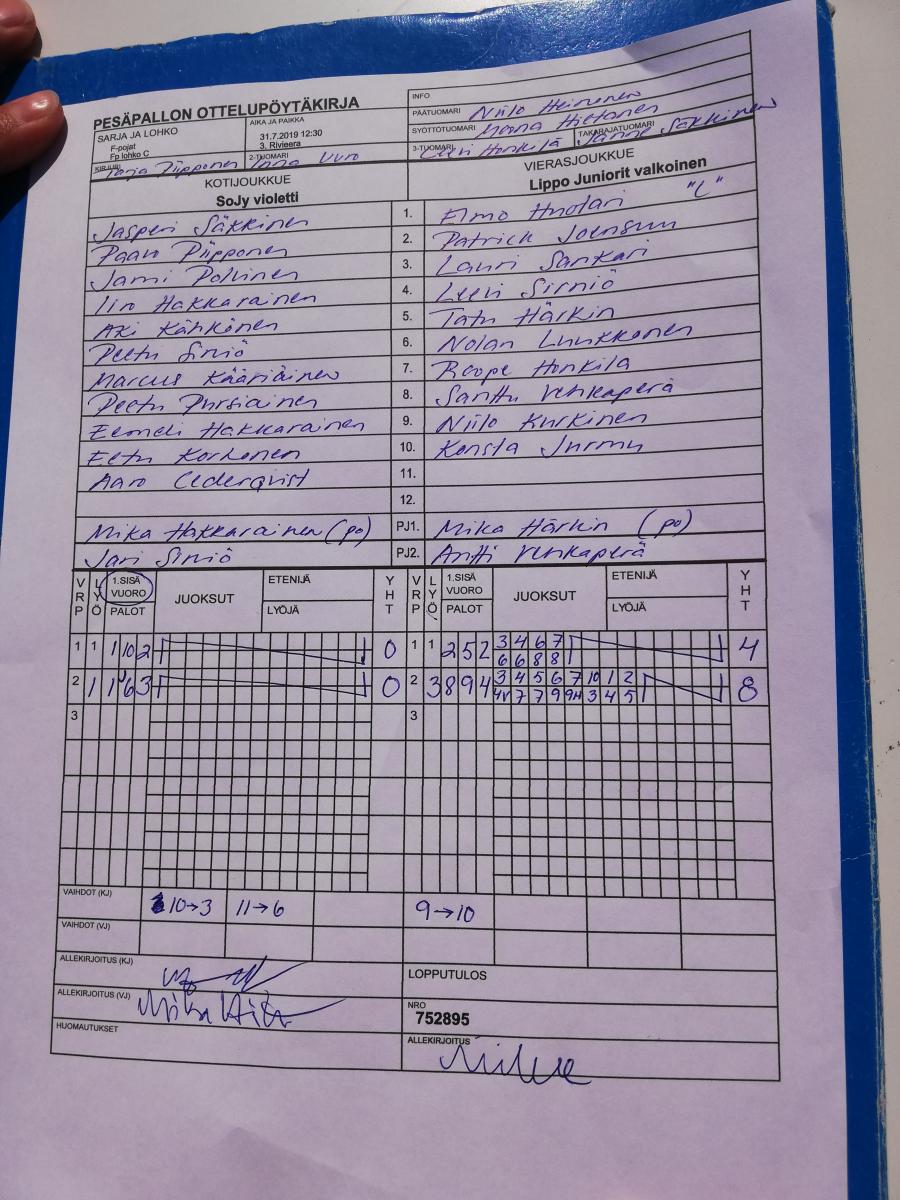 PESÄPALLON OTTELUPÖYTÄKIRJA
INFO
SARJA JA LOHKO
F-pojat
Fp lohko C
AIKA JA PAIKKA
31.7.2019 12:30
3. Rivieera
PÄÄTUOMARI Niilo Heinonen
SYÖTTÖTUOMARI Hietanen
TAKARAJATUOMARI Janne Säkkinen
KIRJURI Tarja Piipponen
2-TUOMARI
3-TUOMARI Eevi Honkilä
KOTIJOUKKUE
SoJy violetti
VIERASJOUKKUE
Lippo Juniorit valkoinen
Jasperi Säkkinen 1. Elmo Huotari "L"
Paavo Piipponen 2. Patrick Joensuu
Jami Polvinen 3. Lauri Sankari
Iiro Hakkarainen 4. Leevi Sirniö
Aki Kähkönen 5. Tatu Härkin
Peetu Siniö 6. Nolan Luukkonen
Marcus Kääriäinen 7. Roope Honkila
Peetu Pursiainen 8. Santtu Venkaperä
Eemeli Hakkarainen 9. Niilo Kurkinen
Eetu Korhonen 10. Konsta Jurmu
Aaro Cederqvist 11.
12.
Mika Hakkarainen (po) PJ1. Mika Härkin (po)
Jari Siniö PJ2. Antti Venkaperä
VRP LYÖ 1.SISÄ VUORO PALOT JUOKSUT ETENIJÄ LYÖJÄ YHT VRP LYÖ 1.SISÄ VUORO PALOT JUOKSUT ETENIJÄ LYÖJÄ YHT
1 1 1 10 2 0 1 1 2 5 2 3 4 6 7 4
6 6 8 8
2 1 1 6 3 0 2 3 8 9 4 3 4 5 6 7 10 1 2 8
4V 7 7 9 9H 3 4 5
3 3
VAIHDOT (KJ) 10→3 11→6 9→10
VAIHDOT (VJ)
ALLEKIRJOITUS (KJ)
LOPPUTULOS
ALLEKIRJOITUS (VJ)
NRO
752895
HUOMAUTUKSET
ALLEKIRJOITUS